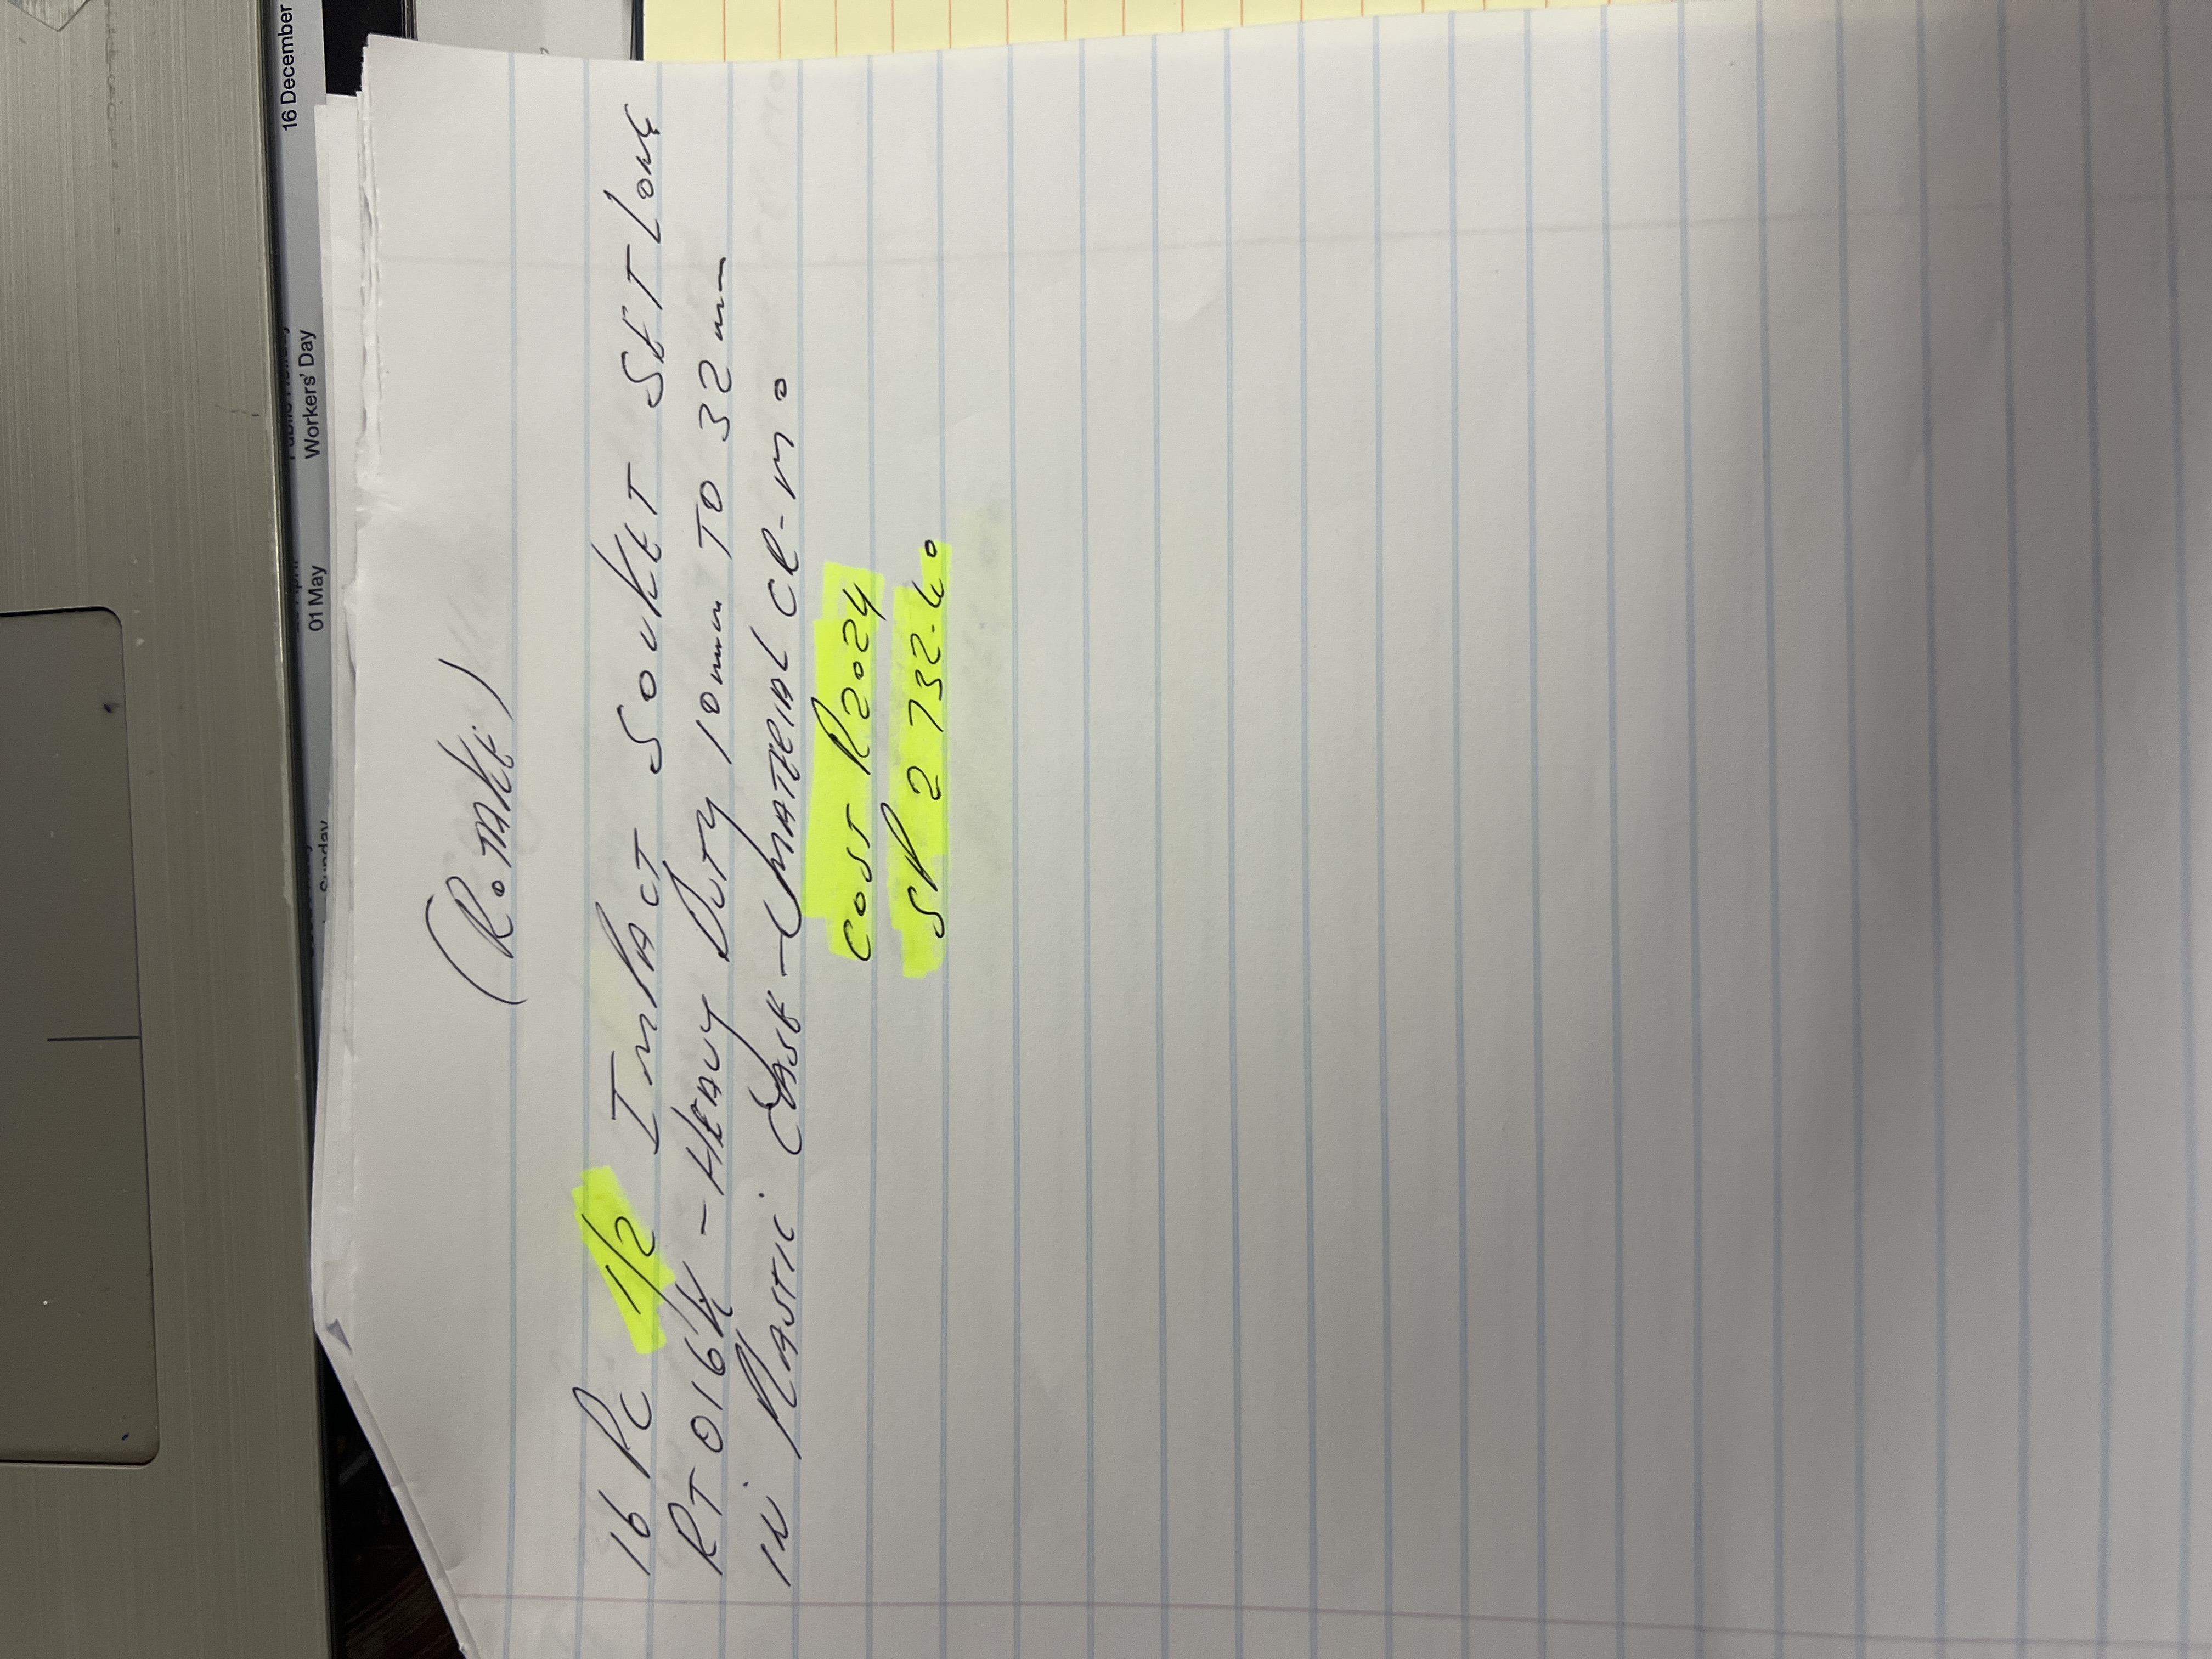 01 May
Workers' Day
16 December
Sunday
(ROTAKE)
16 PC 1/2 IMPACT SOCKET SET LONG
RT016K - HEAVY DUTY 10mm TO 32mm
IN PLASTIC CASE - MATERIAL CR-MO
COST R2024
SP 2 732.40